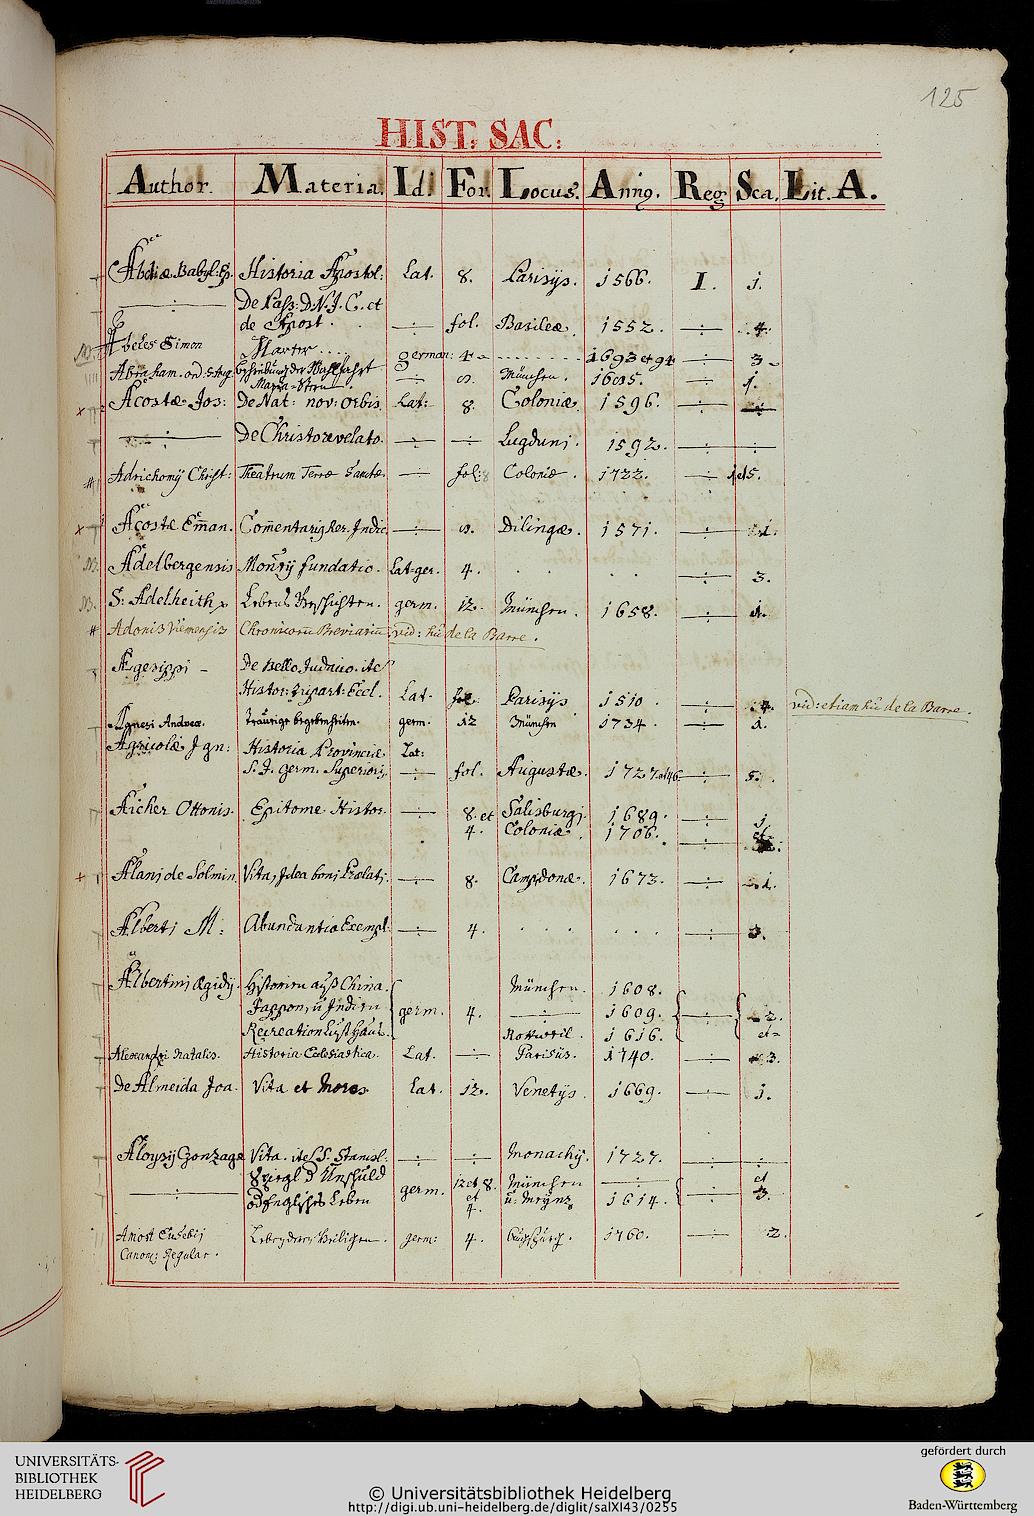 125
HIST: SAC:
Author. Materia. Id. For. Locus. Anno. Reg. Sca. Lit. A.
Abdiæ Babyl: Ep. Historia Apostol: Lat. 8. Parisijs. 1566. I. 1.
—:— De Pass: D.N.J.C. et
de Apost. —:— fol. Basileæ. 1552. —:— 4.
Abeles Simon Marter... german: 4. ....... 1693 et 94 —:— 3.
Abraham. ord. S. Aug. Beschreibung der Wahlfahrt
Maria-Stern —:— 8. München. 1605. —:— 1.
Acostæ Jos: De Nat: novi orbis Lat: 8. Coloniæ. 1596. —:— —:—
—:— De Christo revelato. —:— —:— Lugduni. 1592. —:— —:—
Adrichomij Christ: Theatrum Terræ Sanctæ. —:— fol: 8 Coloniæ. 1722. —:— 1 et 5.
Acostæ Em̃an. Com̃entariq Rer. Indic. —:— 8. Dilingæ. 1571. —:— 1.
Adelbergensis Mon̄rij fundatio. Lat-ger. 4. . . . . —:— 3.
S: Adelheith Lebens Geschichten. germ. 12. München. 1658. —:— 1.
Adonis Viennensis Chronicorū Breviariū. vid: hic de la Barre.
Ægesippi - De Bello Judaico. itē
Histor: tripart: Eccl. Lat. fol. Parisijs 1510. —:— 4. vid: etiam hic de la Barre.
Agnesi Andreæ. Traurige begebenheiten. germ. 12 München 1734. —:— 1.
Agricolæ Ign: Historia Provinciæ Lat:
S.J. Germ. Superioris. —:— fol. Augustæ. 1727. et 46. —:— 5.
Aicher Ottonis. Epitome Histor. —:— 8. et Salisburgi. 1689. —:— 1.
4. Coloniæ. 1706. —:— et
Alani de Solmin. Vita, Idea boni Prælati. —:— 8. Campdonæ. 1673. —:— 1.
Alberti M: Abundantia Exempl. —:— 4. . . . . . . —:— 3.
Albertini Ægidij. Historien auß China. München. 1608.
Jappon, ũ Indien germ. 4. —:— 1609. —:— 2.
Recreation Lust Hauß. Rottweil. 1616. et
Alexandri Natalis. Historia Ecclesiastica. Lat. —:— Parisüs. 1740. —:— 3.
De Almeida Joa. Vita et Mores Lat. 12. Venetijs. 1669. —:— 1.
Aloysij Gonzagæ Vita. itē S. Stanisl. —:— —:— Monachij. 1727. —:— —:—
Spiegl d Unschuld 12 et 8. München —:— et
—:— od Englisches Leben germ. et ũ. Meÿnz 1614. —:— 3.
4.
Amort Eusebij Leben deren Heiligen. germ: 4. Augspurg. 1760. —:— 2.
Canon: Regular.
UNIVERSITÄTS-
BIBLIOTHEK
HEIDELBERG
© Universitätsbibliothek Heidelberg
http://digi.ub.uni-heidelberg.de/diglit/salXI43/0255
gefördert durch
Baden-Württemberg